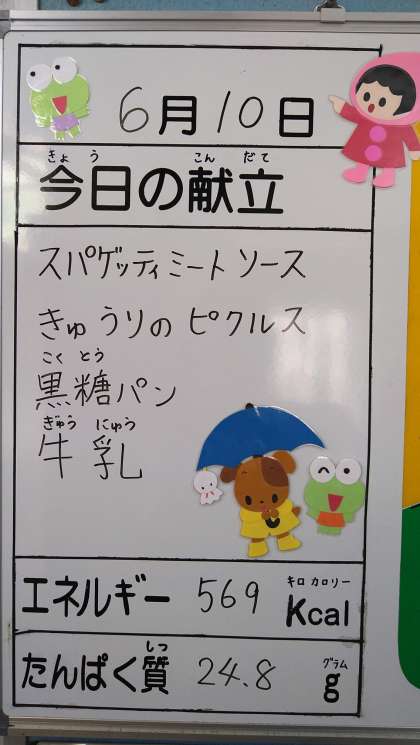 6月10日
きょう こんだて
今日の献立
スパゲッティミートソース
きゅうりのピクルス
こくとう
黒糖パン
ぎゅうにゅう
牛乳
キロカロリー
エネルギー 569 Kcal
しつ グラム
たんぱく質 24.8 g